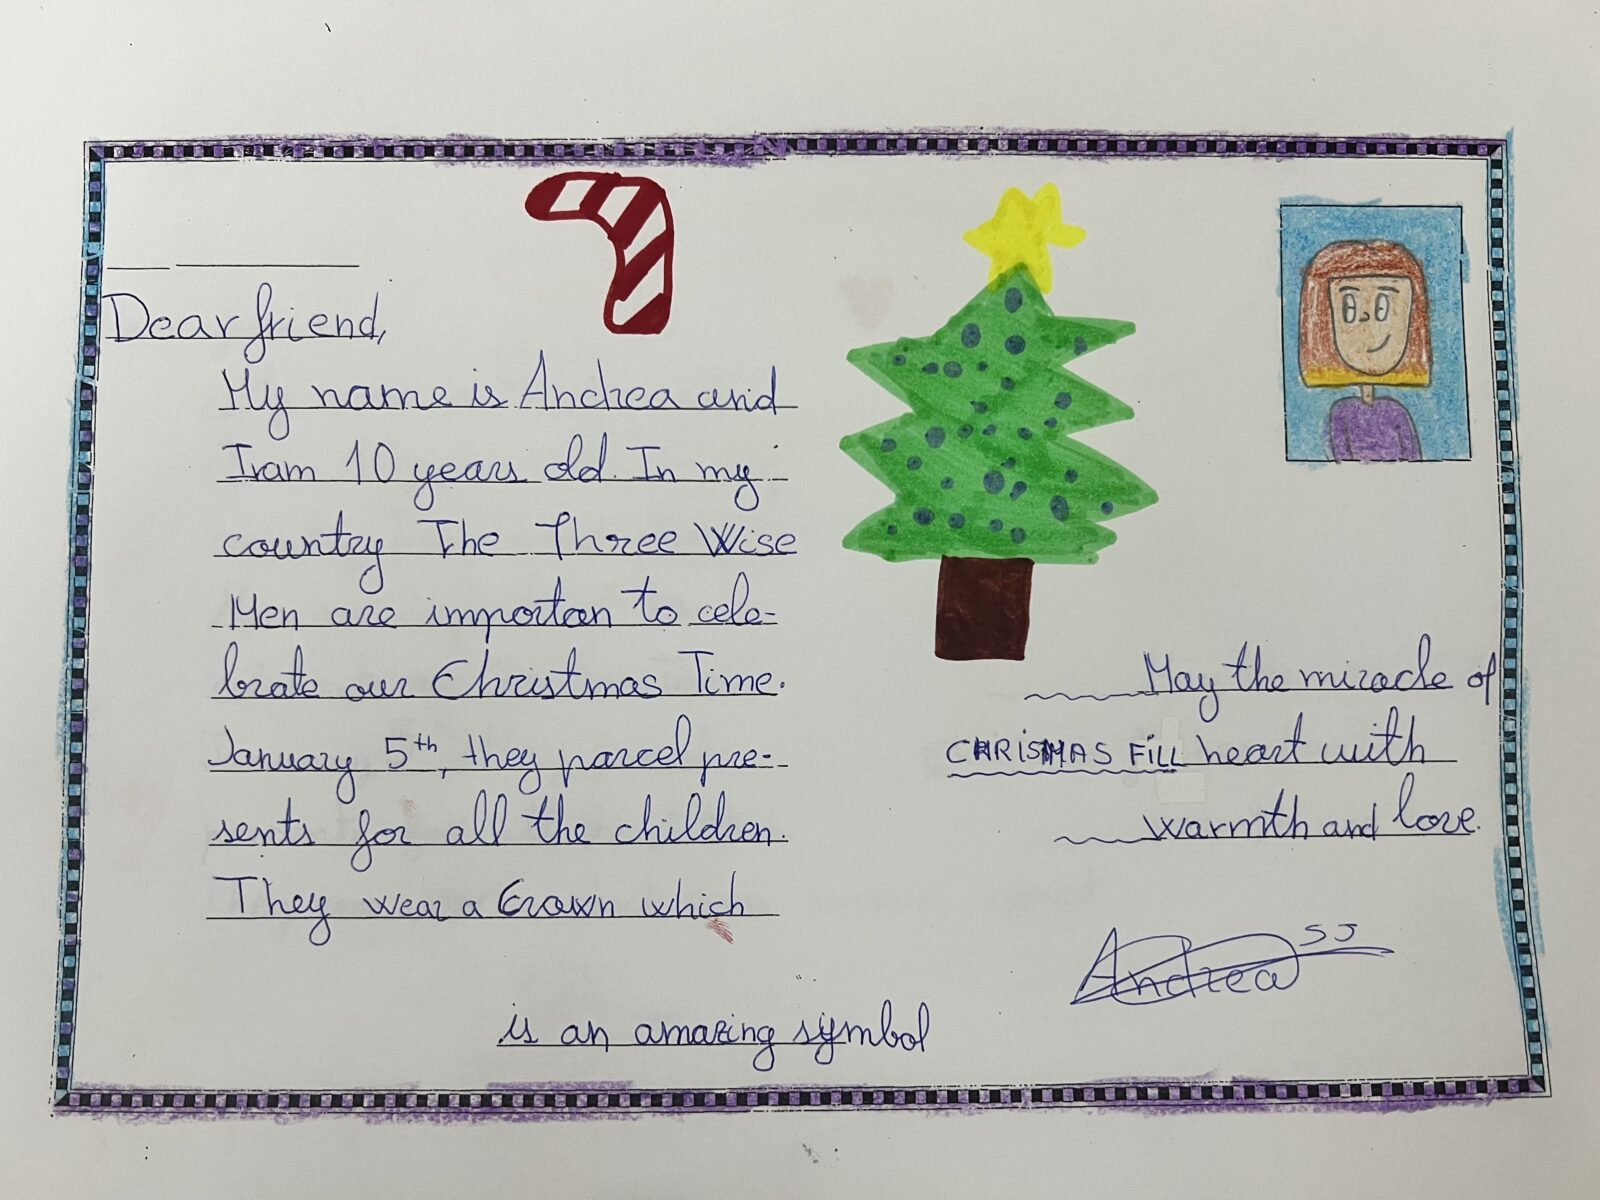 Dear friend,
My name is Andrea and
I am 10 years old. In my
country The Three Wise
Men are importan to cele-
brate our Christmas Time.
January 5th, they parcel pre-
sents for all the children.
They wear a Crown which
is an amazing symbol
May the miracle of
CHRiSMAS FiLL heart with
warmth and love.
Andrea SJ